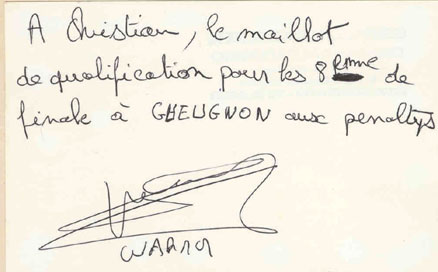 A Christian, le maillot
de qualification pour les 8ème de
finale à GHEUGNON aux penaltys